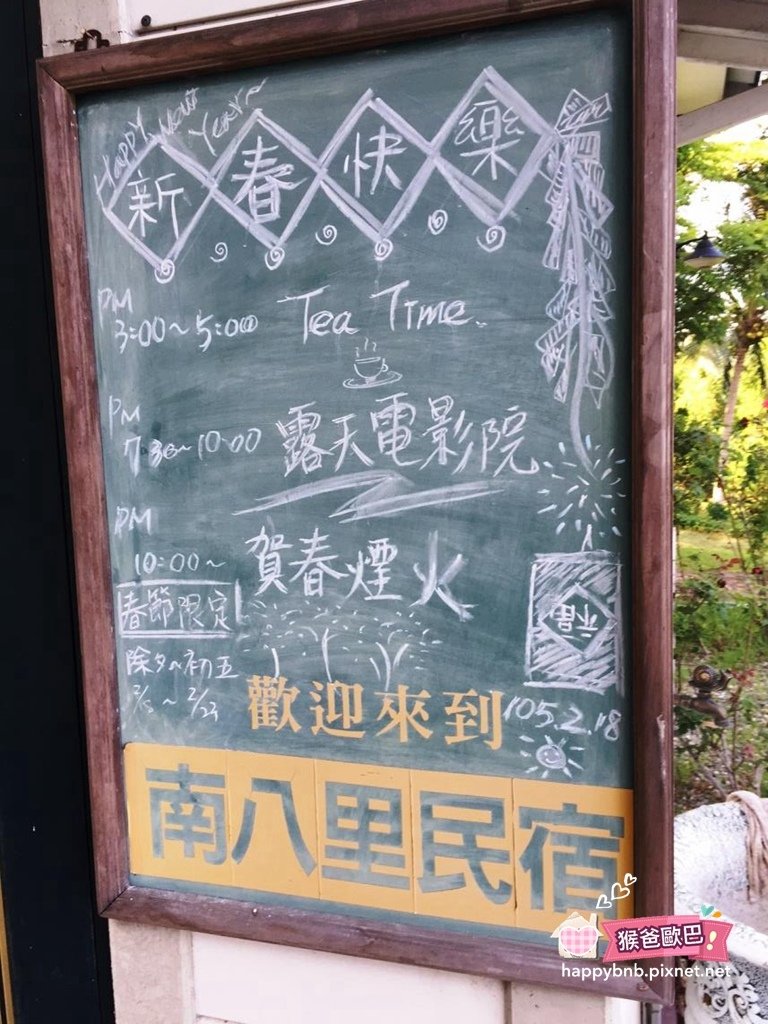 Happy New Year
新春快樂
PM
3:00~5:00 Tea Time
PM
7:30~10:00 露天電影院
PM
10:00~ 賀春煙火
春節限定
除夕~初五
歡迎來到
105.2.18
南八里民宿
猴爸歐巴!
happybnb.pixnet.net